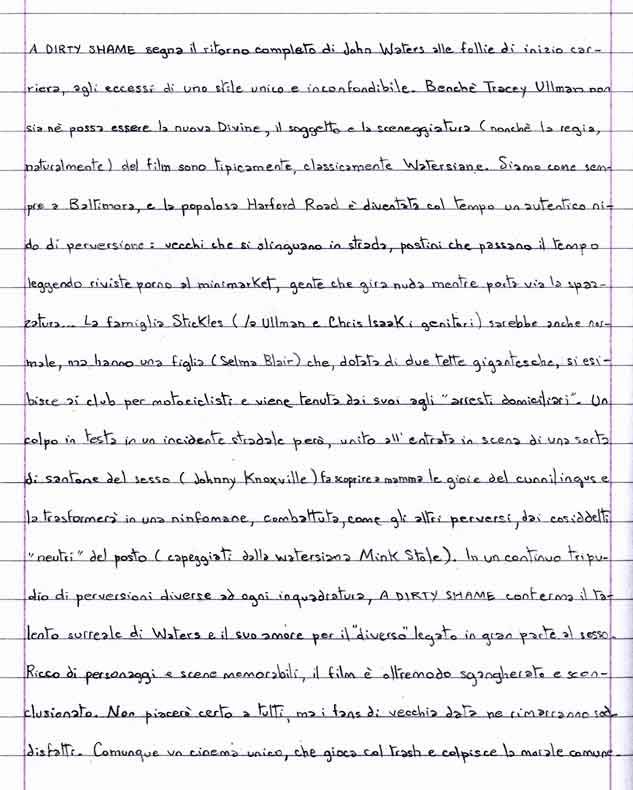 A DIRTY SHAME segna il ritorno completo di John Waters alle follie di inizio car-
riera, agli eccessi di uno stile unico e inconfondibile. Benchè Tracey Ullman non
sia nè possa essere la nuova Divine, il soggetto e la sceneggiatura (nonchè la regia,
naturalmente) del film sono tipicamente, classicamente Watersiane. Siamo come sem-
pre a Baltimora, e la popolosa Harford Road è diventata col tempo un autentico ni-
do di perversione: vecchi che si slinguano in strada, postini che passano il tempo
leggendo riviste porno al minimarket, gente che gira nuda mentre porta via la spaz-
zatura... La famiglia Stickles (la Ullman e Chris Isaak i genitori) sarebbe anche nor-
male, ma hanno una figlia (Selma Blair) che, dotata di due tette gigantesche, si esi-
bisce ai club per motociclisti e viene tenuta dai suoi agli "arresti domiciliari". Un
colpo in testa in un incidente stradale però, unito all'entrata in scena di una sorta
di santone del sesso (Johnny Knoxville) fa scoprire a mamma le gioie del cunnilingus e
la trasformerà in una ninfomane, combattuta, come gli altri perversi, dai cosiddetti
"neutri" del posto (capeggiati dalla watersiana Mink Stole). In un continuo tripu-
dio di perversioni diverse ad ogni inquadratura, A DIRTY SHAME conferma il ta-
lento surreale di Waters e il suo amore per il "diverso" legato in gran parte al sesso.
Ricco di personaggi e scene memorabili, il film è oltremodo sgangherato e scon-
clusionato. Non piacerà certo a tutti, ma i fans di vecchia data ne rimarranno sod-
disfatti. Comunque un cinema unico, che gioca col trash e colpisce la morale comune.